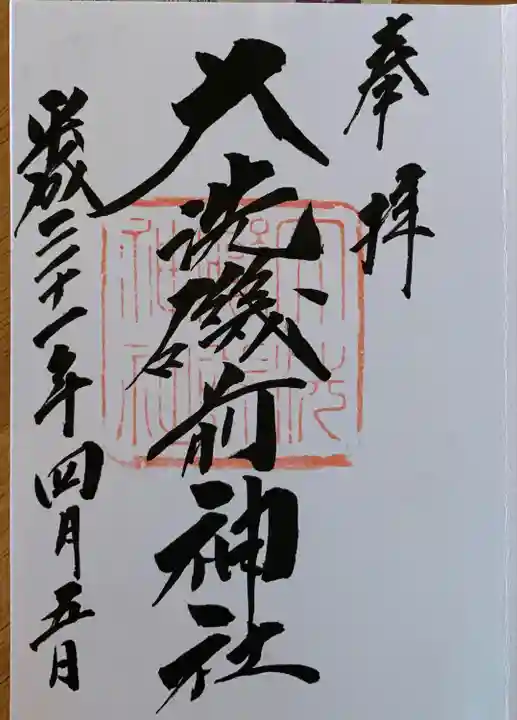 奉拝
大洗磯前神社
大洗
磯前
神社
平成三十一年四月五日